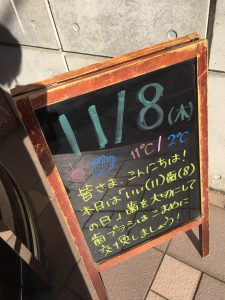 11/8(木)
11℃/2℃
皆さま、こんにちは!
本日は「いい(11)歯(8)
の日」歯を大切にして
歯ブラシはこまめに
交換しましょう!